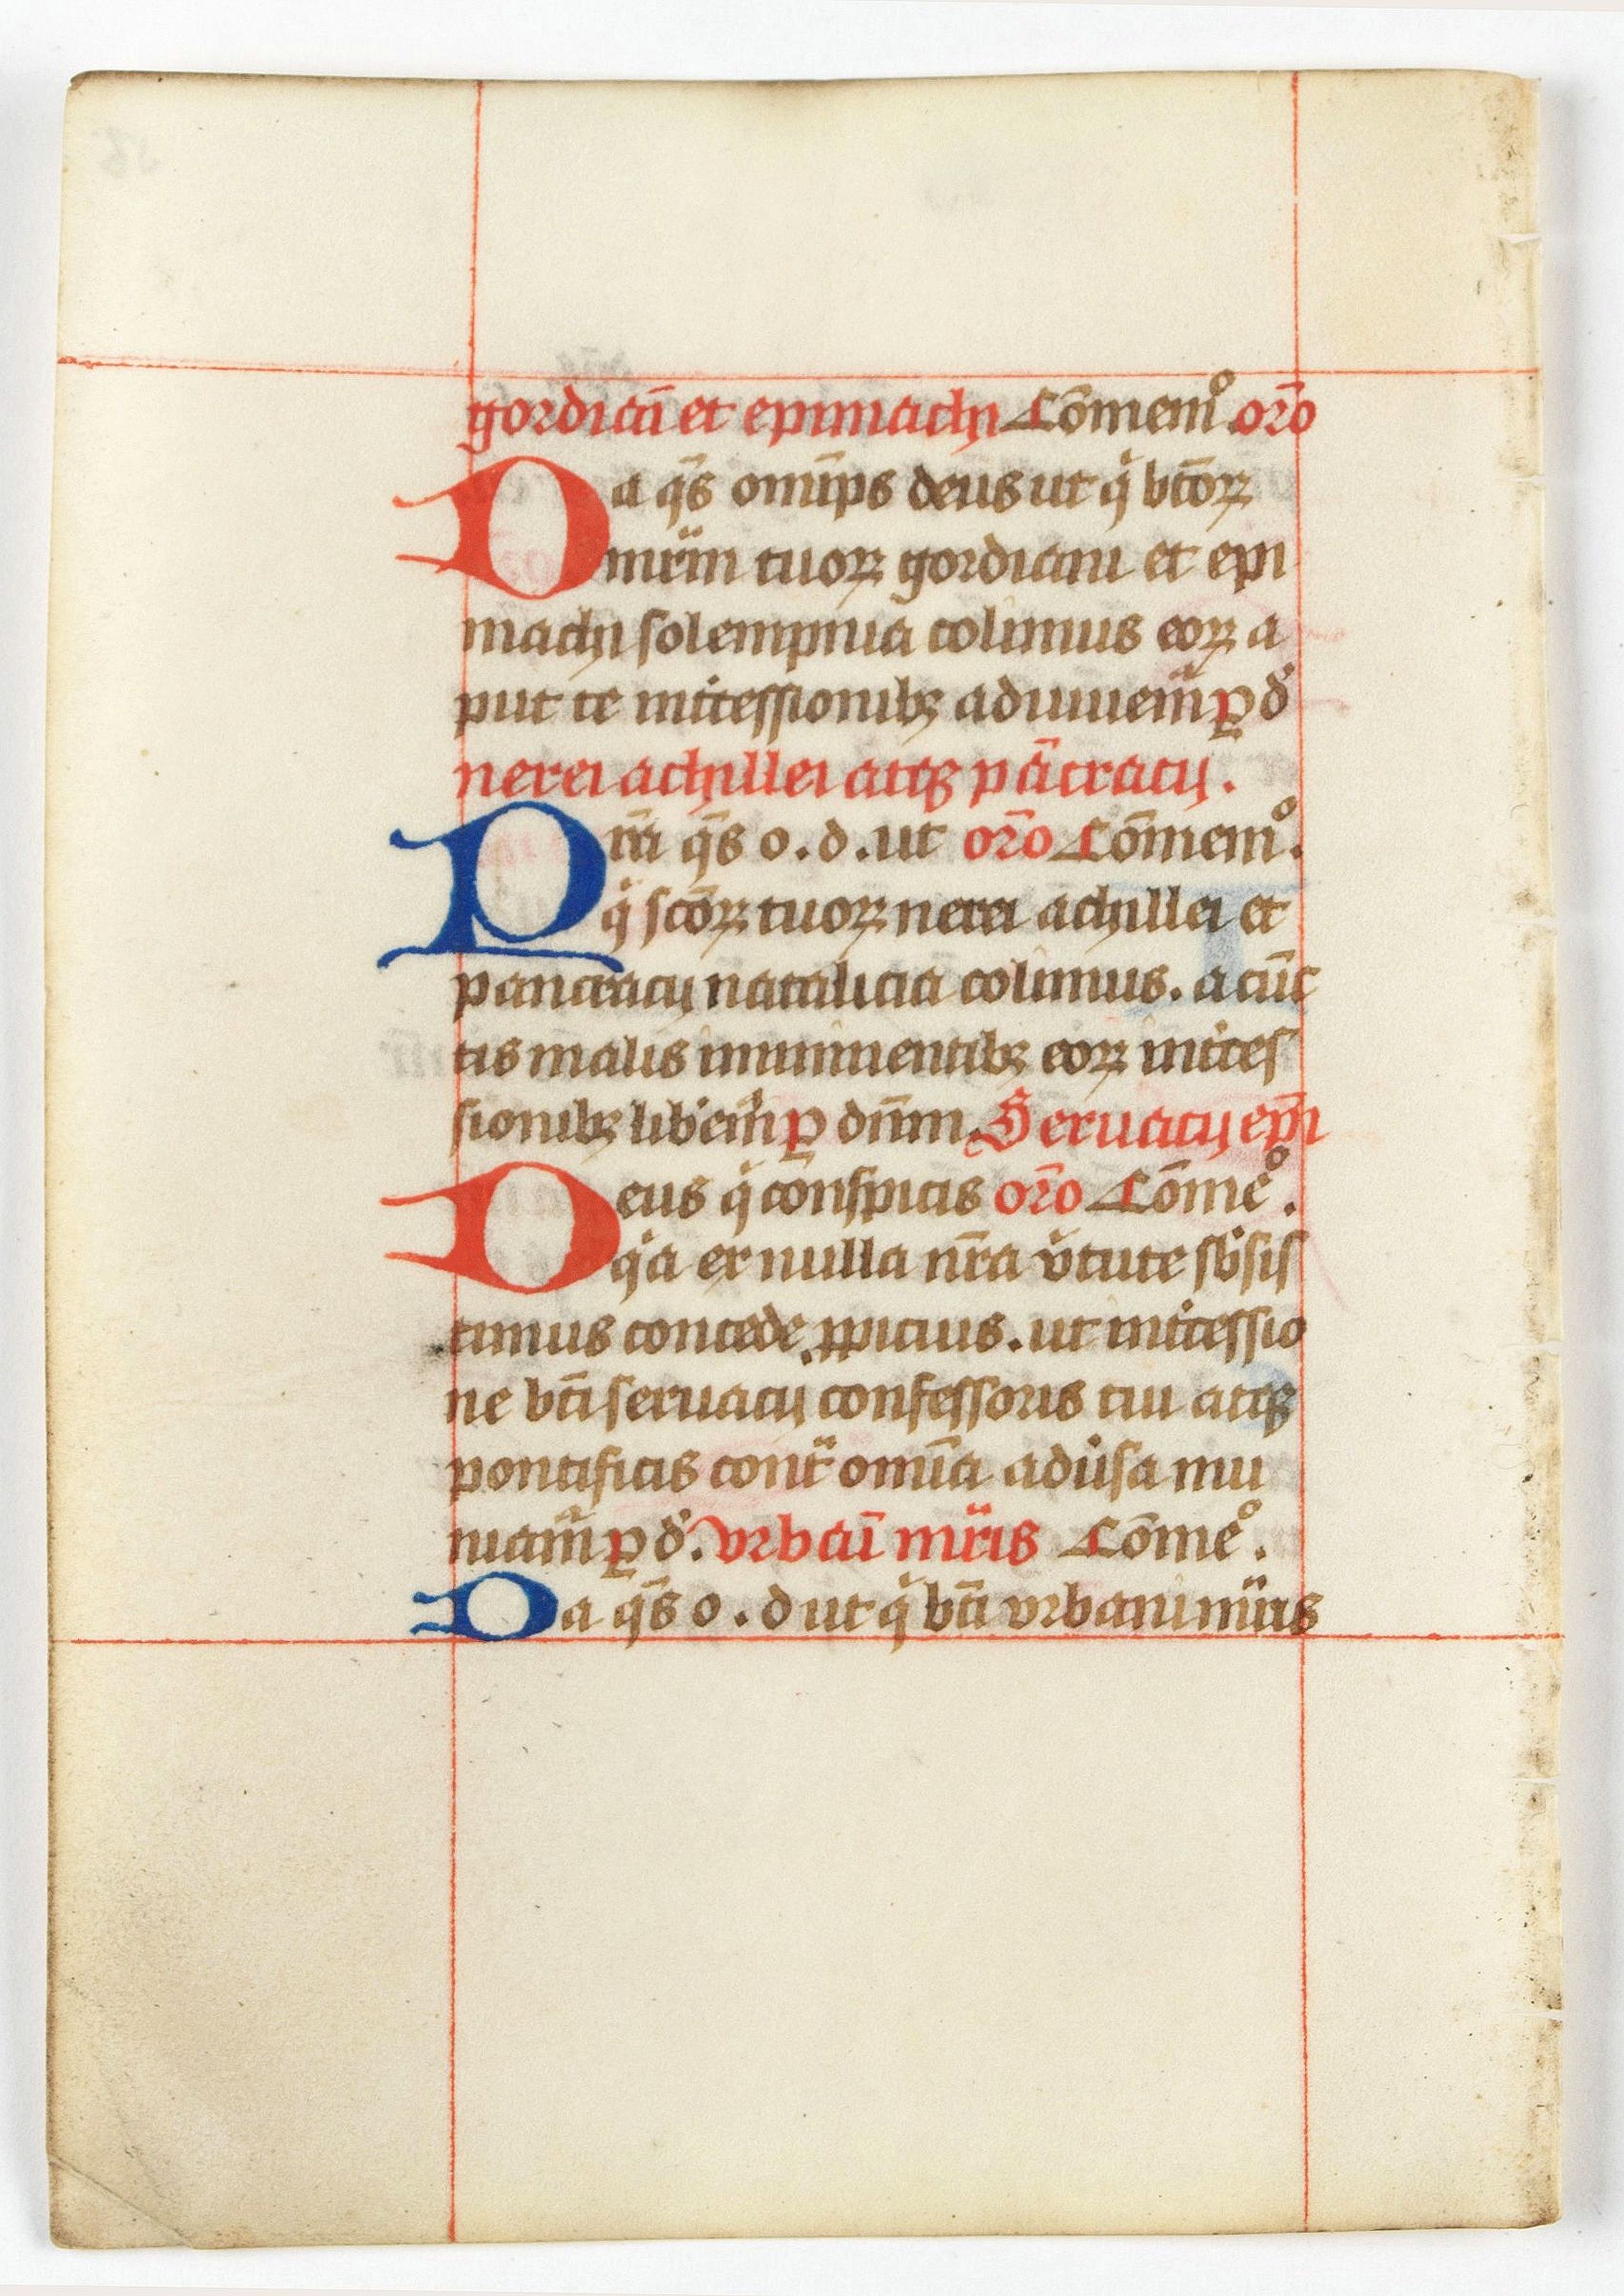 gordiāi et epimachij Cōmemº orō
Da qs̄ omīps deus ut qͥ btōꝝ
mr̄im tuoꝝ gordiani et epi
machij solempnia colimus eoꝝ a
put te int̾cessionibꝫ adiuuem̃ ꝑ d̾
nerei achillei atqꝫ pācracij .
Prā qs̄ o . d . ut orō Cōmemº .
qͥ scōꝝ tuoꝝ nerei achillei et
pancracij natalicia colimus . a cūc
tis malis imminentibꝫ eoꝝ int̾ces
sionibꝫ lib̾em̃ ꝑ dn̄m . Seruacij epī
Deus qͥ conspicis orō Cōmeº .
qͥa ex nulla nr̄a v̾tute sb̾sis
timus concede ꝓpicius . ut int̾cessio
ne bt̄i seruacij confessoris tui atqꝫ
pontificis contᷓ omīa adu̾sa mu
niam̃ ꝑ d̾ . vrbāi mr̄is Cōmeº .
Da qs̄ o . d ut qͥ bt̄i vrbani mr̄is